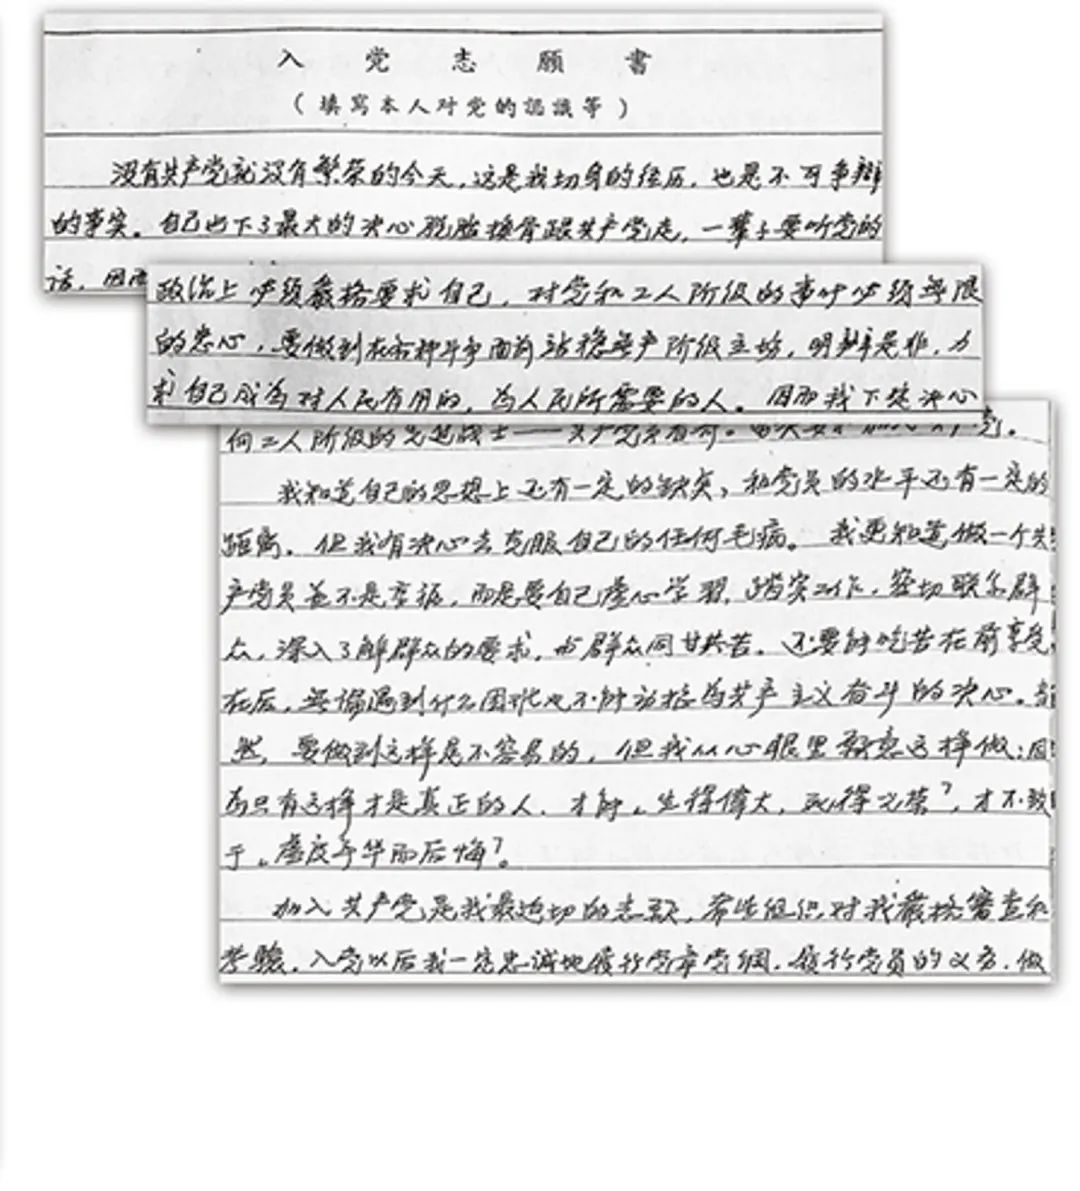 入党志願書
（填寫本人对党的認識等）
没有共产党就没有繁荣的今天，这是我切身的经历，也是不可争辩
的事实。自己也下了最大的决心脱胎换骨跟共产党走，一辈子要听党的
话，因而
政治上必须严格要求自己，对党和工人阶级的事业必须無限
的忠心，要做到在各种斗争面前站稳無产阶级立场，明辨是非，力
求自己成为对人民有用的，为人民所需要的人。因而我下定决心
向工人阶级的先进战士——共产党员看齐。
我知道自己的思想上还有一定的缺点，和党员的水平还有一定的
距离。但我有决心去克服自己的任何毛病。我更知道做一个共
产党员並不是享福，而是要自己虚心学習，踏实工作，密切联系群
众，深入了解群众的要求，与群众同甘共苦。还要能吃苦在前享受
在后，無論遇到什么困难也不能动摇为共产主义奋斗的决心。雖
然，要做到这样是不容易的，但我从心眼里願意这样做；因
为只有这样才是真正的人，才能“生得偉大，死得光荣”，才不致
于“虚度年华而后悔”。
加入共产党是我最迫切的志願，希望组织对我严格審查和
考驗，入党以后我一定忠诚地履行党章党綱，履行党员的义务，做